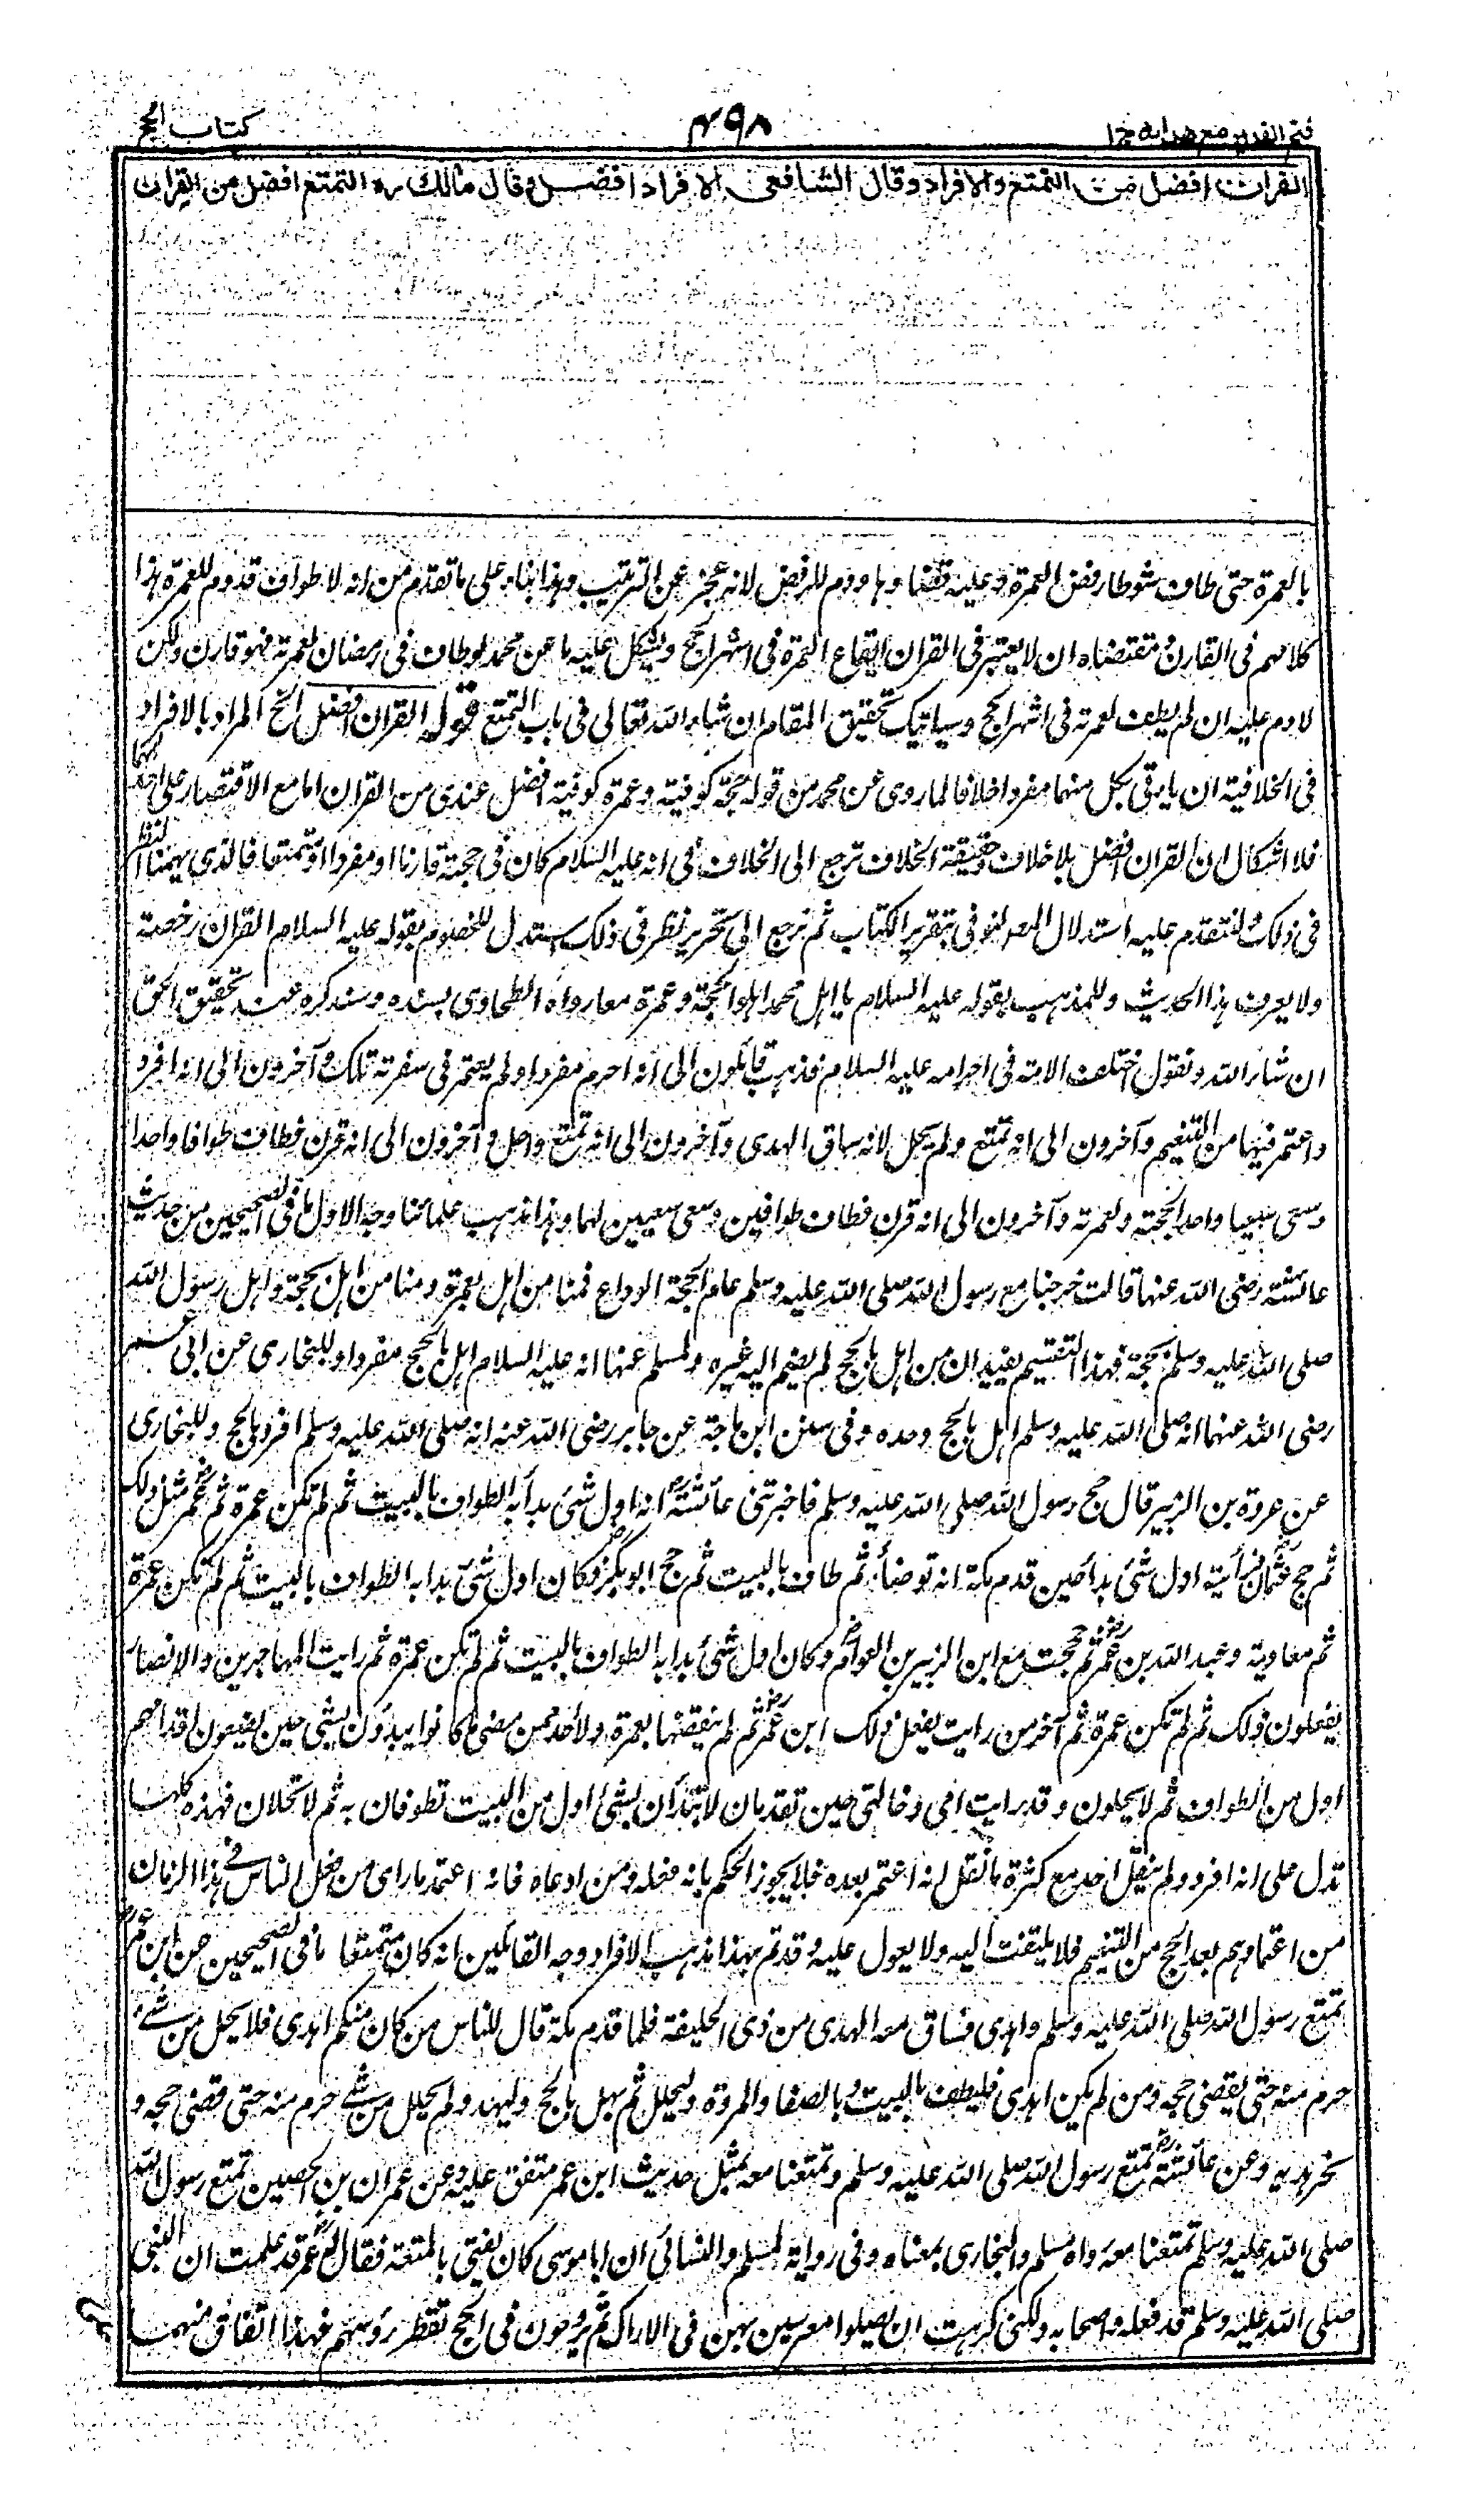 فتح القدير مع هدايه ج ا
۴۹۸
كتاب الحج
القران افضل من التمتع والافراد وقال الشافعي الافراد افضل وقال مالك ره التمتع افضل من القران
بالعمرة حتى طاف شوطا رفض العمرة وعليه قضاؤها ودم للرفض لانه عجز عن الترتيب وهذا بناء على ما تقدم من انه لا طواف قدوم للعمرة هذا
كلامهم فى القارن ومقتضاه ان لا يعتبر فى القران ايقاع العمرة فى اشهر الحج ويشكل عليه ما عن محمد لو طاف فى رمضان لعمرته فهو قارن ولكن
لا دم عليه ان لم يطف لعمرته فى اشهر الحج وسياتيك تحقيق المقام ان شاء الله تعالى فى باب التمتع قوله القران افضل الخ المراد بالافراد
فى الخلافية ان ياتى بكل منهما مفردا خلافا لما روى عن محمد من قوله حجة كوفية وعمرة كوفية افضل عندى من القران اما مع الاقتصار على احدهما
فلا اشكال ان القران افضل بلا خلاف وحقيقة الخلاف ترجع الى الخلاف فى انه عليه السلام كان فى حجته قارنا او مفردا او متمتعا فالذى يهمنا النظر
فى ذلك ولنقدم عليه استدلال المص لنوفى بتقرير الكتاب ثم نرجع الى تحرير نظر فى ذلك استدل للخصوم بقوله عليه السلام القران رخصة
ولا يعرف هذا الحديث وللمذهب بقوله عليه السلام يا اهل محمد اهلوا بحجة وعمرة معا رواه الطحاوى بسنده وسنذكره عند تحقيق الحق
ان شاء الله ونقول اختلف الامة فى احرامه عليه السلام فذهب قائلون الى انه احرم مفردا ولم يعتمر فى سفرته تلك وآخرون الى انه افرد
واعتمر فيها من التنعيم وآخرون الى انه تمتع ولم يحل لانه ساق الهدى وآخرون الى انه تمتع واحل وآخرون الى انه قرن فطاف طوافا واحدا
وسعى سعيا واحدا لحجته ولعمرته وآخرون الى انه قرن فطاف طوافين وسعى سعيين لهما وهذا مذهب علمائنا وجه الاول ما فى الصحيحين من حديث
عائشة رضى الله عنها قالت خرجنا مع رسول الله صلى الله عليه وسلم عام حجة الوداع فمنا من اهل بعمرة ومنا من اهل بحجة واهل رسول الله
صلى الله عليه وسلم بحجة فهذا التقسيم يفيد ان من اهل بالحج لم يضم اليه غيره ولمسلم عنها انه عليه السلام اهل بالحج مفردا وللبخارى عن ابى عمر
رضى الله عنهما انه صلى الله عليه وسلم اهل بالحج وحده وفى سنن ابن ماجة عن جابر رضى الله عنه انه صلى الله عليه وسلم افرد بالحج وللبخارى
عن عروة بن الزبير قال حج رسول الله صلى الله عليه وسلم فاخبرتنى عائشة رض انه اول شئ بدأ به الطواف بالبيت ثم لم تكن عمرة ثم عمر رض مثل ذلك
ثم حج عثمان رض فرأيته اول شئ بدأ حين قدم مكة انه توضأ ثم طاف بالبيت ثم حج ابو بكر رض فكان اول شئ بدا به الطواف بالبيت ثم لم تكن عمرة
ثم معاوية وعبد الله بن عمر رض ثم حججت مع ابن الزبير بن العوام رض وكان اول شئ بدا به الطواف بالبيت ثم لم تكن عمرة ثم رايت المهاجرين والانصار
يفعلون ذلك ثم لم تكن عمرة ثم آخر من رايت يفعل ذلك ابن عمر رض ثم لم ينقضها بعمرة ولا احد ممن مضى ما كانوا يبدؤن بشئ حين يضعون اقدامهم
اول من الطواف ثم لا يحلون وقد رايت امى وخالتى حين تقدمان لا تبتدأن بشئ اول من البيت تطوفان به ثم لا تحلان فهذه كلها
تدل على انه افرد ولم ينقل احد مع كثرة ما نقل انه اعتمر بعده فلا يجوز الحكم بانه فعله ومن ادعاه فانه اعتمد ما راى من فعل الناس فى هذا الزمان
من اعتمارهم بعد الحج من التنعيم فلا يلتفت اليه ولا يعول عليه وقد تم بهذا مذهب الافراد وجه القائلين انه كان متمتعا ما فى الصحيحين عن ابن عمر رض
تمتع رسول الله صلى الله عليه وسلم واهدى فساق معه الهدى من ذى الحليفة فلما قدم مكة قال للناس من كان منكم اهدى فلا يحل من شئ
حرم منه حتى يقضى حجه ومن لم يكن اهدى فليطف بالبيت وبالصفا والمروة وليحلل ثم يهل بالحج وليهد ولم يحلل من شئ حرم منه حتى قضى حجه و
نحر هديه وعن عائشة رض تمتع رسول الله صلى الله عليه وسلم وتمتعنا معه بمثل حديث ابن عمر متفق عليه وعن عمران بن الحصين تمتع رسول الله
صلى الله عليه وسلم وتمتعنا معه رواه مسلم والبخارى بمعناه وفى رواية لمسلم والنسائى ان ابا موسى كان يفتى بالمتعة فقال له عمر رض قد علمت ان النبى
صلى الله عليه وسلم قد فعله واصحابه ولكنى كرهت ان يصلوا معرسين بهن فى الاراك ثم يروحون فى الحج تقطر رؤسهم فهذا اتفاق منهما